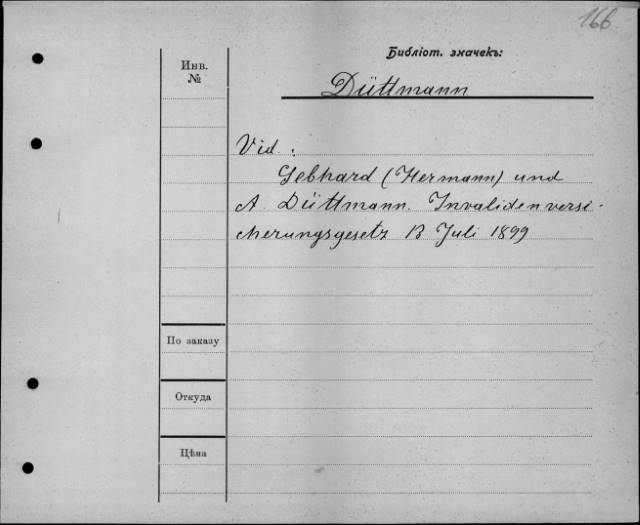 166
Библіот. значекъ:
Инв.
№
Düttmann
Vid.:
Gebhard (Hermann) und
A. Düttmann. Invalidenversi-
cherungsgesetz 13 Juli 1899
По заказу
Откуда
Цѣна